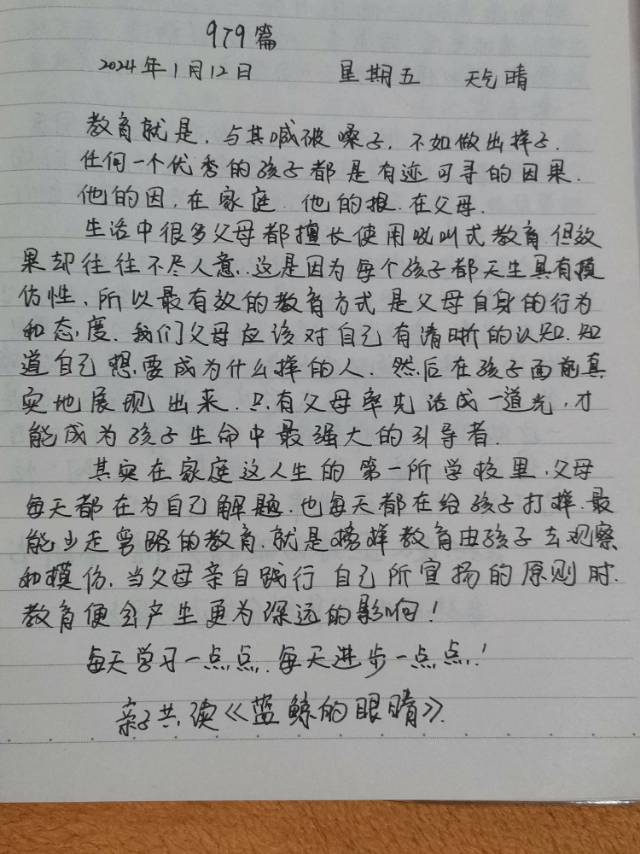 979篇
2024年1月12日 星期五 天气晴
教育就是,与其喊破嗓子,不如做出样子.
任何一个优秀的孩子都是有迹可寻的因果.
他的因,在家庭 他的根.在父母.
生活中很多父母都擅长使用吼叫式教育但效
果却往往不尽人意.这是因为每个孩子都天生具有模
仿性,所以最有效的教育方式是父母自身的行为
和态度.我们父母应该对自己有清晰的认知.知
道自己想要成为什么样的人.然后在孩子面前真
实地展现出来.只有父母率先活成一道光,才
能成为孩子生命中最强大的引导者.
其实在家庭这人生的第一所学校里.父母
每天都在为自己解题.也每天都在给孩子打样.最
能少走弯路的教育.就是榜样教育由孩子去观察
和模仿.当父母亲自践行自己所宣扬的原则时.
教育便会产生更为深远的影响!
每天学习一点点.每天进步一点点!
亲子共读《蓝鲸的眼睛》.